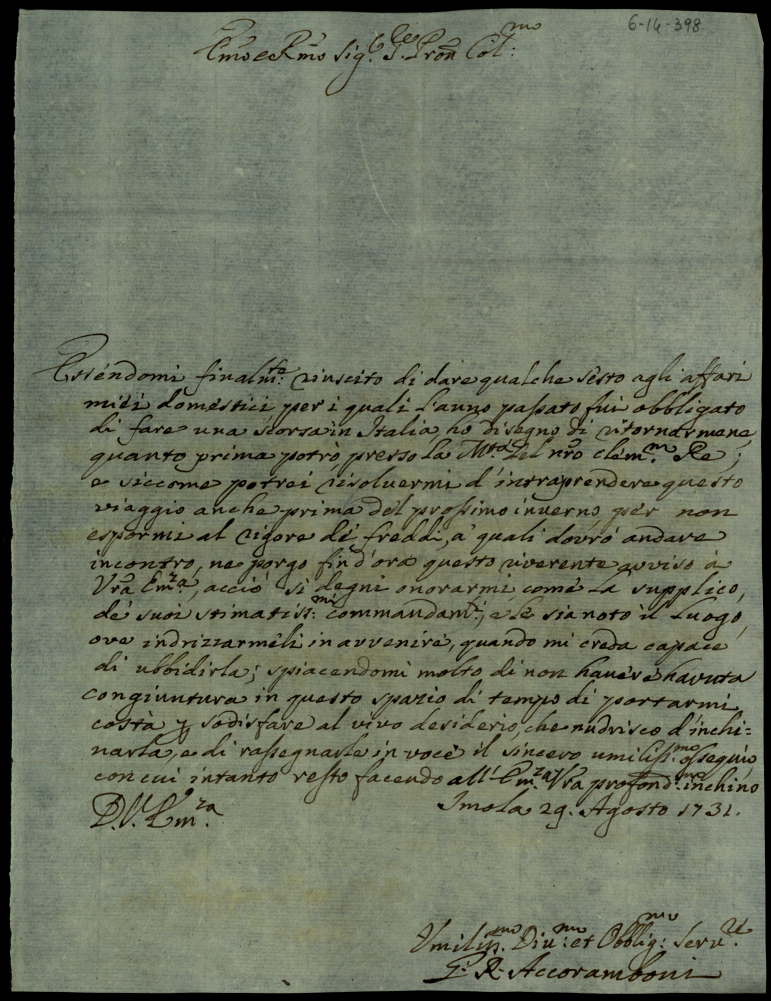 6-14-398
Emo e Rmo Sig.r Pron Col:mo
Essendomi finalmte: riuscito di dare qualche sesto agli affari
miei domestici per i quali l'anno passato fui obbligato
di fare una scorsa in Italia, ho disegno di ritornarmene,
quanto prima potrò, presso la Mtà del nro clem.mo Re;
e siccome potrei risoluermi d'intraprendere questo
viaggio anche prima del prossimo inverno, per non
espormi al rigore de freddi, a' quali dovrò andare
incontro, ne porgo fin d'ora questo riverente avviso à
Vra Em.za, acciò si degni onorarmi come la supplico,
de' suoi stimatiss:mi commandanti; e le sia noto il luogo,
ove indrizzarmeli in avvenire, quando mi creda capace
di ubbidirla; spiacendomi molto di non havere havuta
congiuntura in questo spazio di tempo di portarmi
costà p sodisfare al vivo desiderio, che nudrisco d'inchi=
narla, e di rassegnarle in voce il sincero umiliss:mo ossequio
con cui intanto resto facendo all'Em.za Vra profond.mo inchino
D. V. Em.za
Imola 29. Agosto 1731.
Umiliss.mo Diu:mo et Obblig:mo Seru.re
G: R: Accoramboni